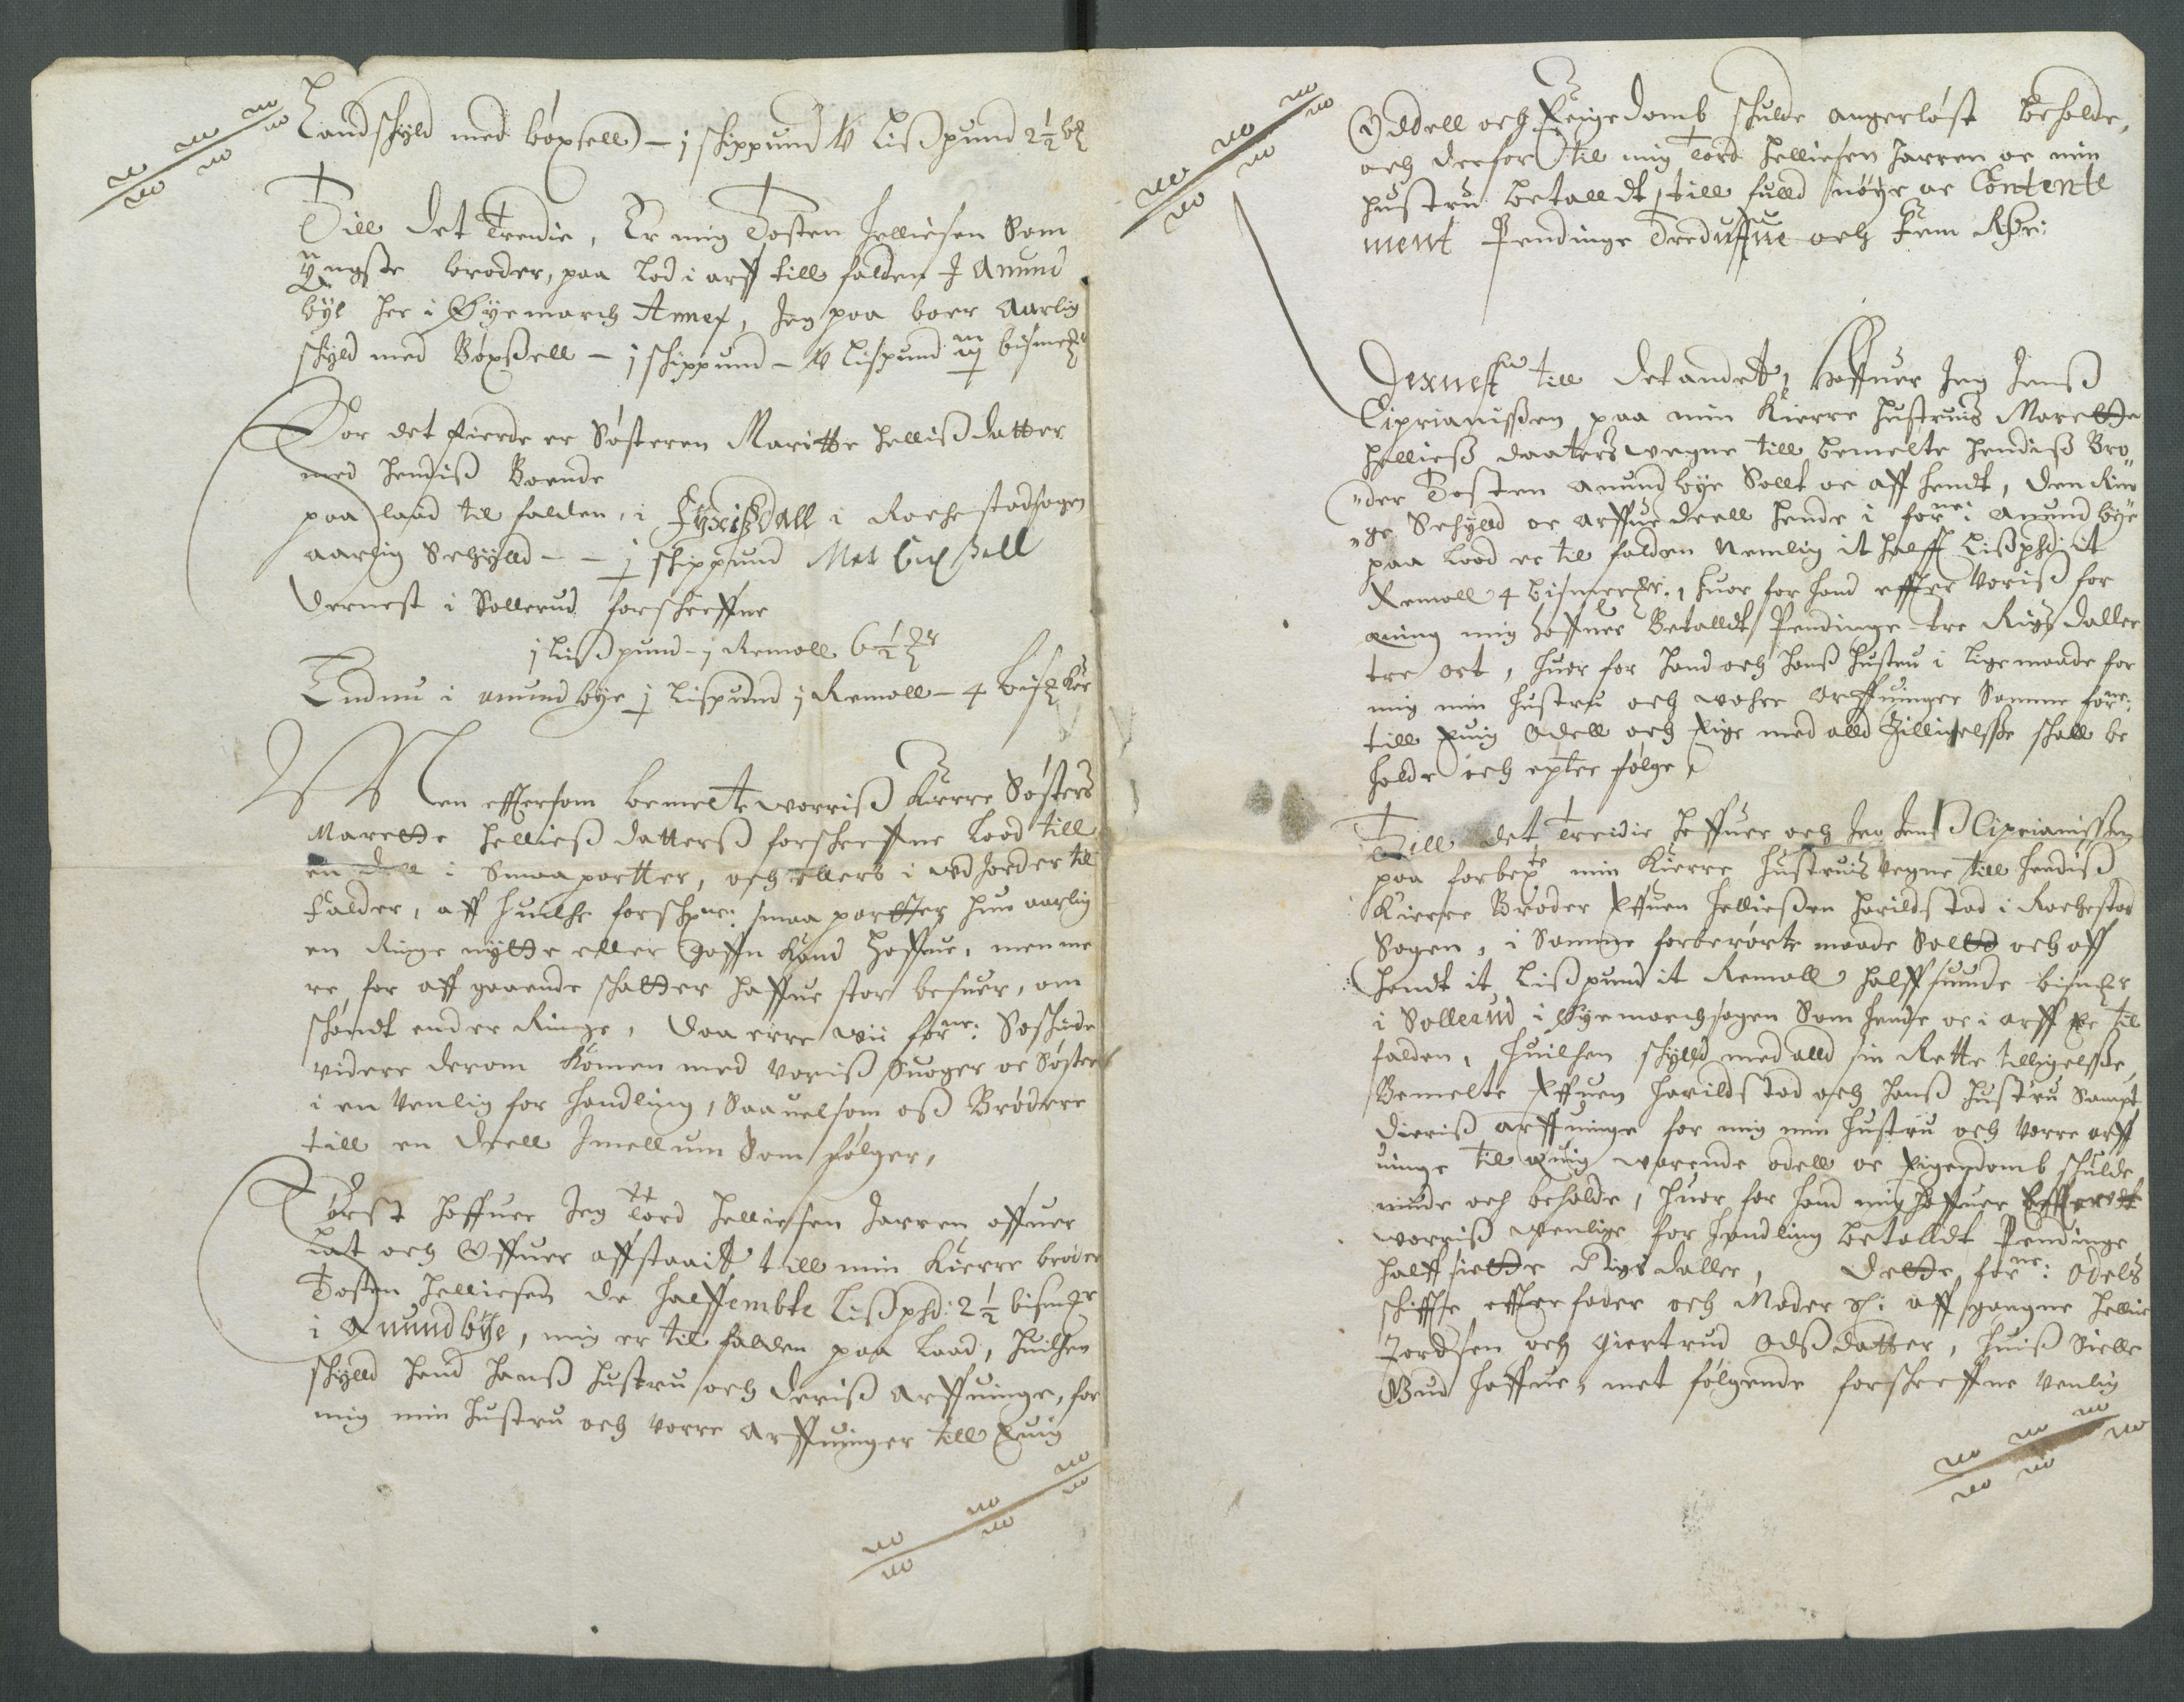 Landschyld med bøxsell – j schippund V Lißpund 2½ b
Till det tredie, Er mig Tosten Helliesen Som
yngste broder, paa lod i arff till falden I Anund
bye her i Øÿemarch Annex, Jeg paa boer Aarlig
schyld med Bøxßell – j schippund – V Lispund iij bismer
For det fierde er Søsteren Maritte Helliß datter
med hendiß Boende
paa laad til falden, i i Rachestadsogen
aarlig Schÿlld – – j schippund Met bøxsell
dernest i Sollerud forschreffne
j Lißpund – j Remoll 6½
Endnu i anundbye j Lispund j Remoll – 4 bis
Men effersom bemelte worriß Kierre Søsters
Marette Helließ datterß forschreffne Lood till
en deell i Smaa partter, och ellers i ødJorder til
falder, aff huilche forschne: smaa partter hun aarlig
en Ringe nytte eller gaffn kand haffue, men me
re, for aff gaaende schatter haffue stor besuer, om
schøndt end er Ringe, Daa erre wii forne: Søschinde
videre derom komen med voriß Suoger oc Søster
i en venlig for handling, Saauelsom oß Brødere
till en deell Jmellum Som følger,
Først haffuer Jeg Tord Helliesen Jarren offuer
lat och Offuer affstaait till min kierre broder
Tosten Helliesen de halffembte Lißphd: 2½ bismer
i Anundbÿe, mig er til falden paa Laad, huilchen
schylld hand hanß hustru och deriß Arffuinge, for
mig min hustru och vorre Arffuinger till Euig
Oddell och Eeigedomb schulde angerløst beholde,
och derfor til mig Tord Helliesen Jarren oc min
hustru betalldt till fulld nøye oc Contente
ment Pendinge Treduffue och Fem Rdr:
Dernest till det andet, Haffuer Jeg Jenß
Ciprianißen paa min Kierre hustruis Marette
Helließ daaters vegne till bemelte hendiß Bro
der Tosten Anundbye Sollt oc aff hendt, den Rin
ge Schylld oc arffuedeell hende i forne: Anundbye
paa Lood er til falden Nemlig it halff Lißphd: it
Remoll 4 bismer, huor for hand effter voriß for
ening mig haffuer Betalldt Pendinge tre Rigs daller
tre ort, huor for hand och hanß hustru i lige maade for
mig min hustru och wohre Arffuinger Samme forne:
till Euig Odell och Eige med alld Tilligelsße schall be
holde och epter følge
Till det Tredie Haffuer och Jeg Jenß Ciprianissen
paa min Kierre Hustruis vegne till hendiß
Kierre Broder Effuen Helließen Harildstad i Rachestad
Sogen, i Samme forberørte maade Solldt och aff
hendt it Lißpund it Remoll halffsiuende bismer
i Sollerud i Øyemarchsogen Som hende oc i arff er til
falden, Huilchen schylld med alld sin Rette tilligelsße,
Bemelte Effuen Harildstad och hanß hustru Sampt
dieriß Arffuinge for mig min hustru och vorre arff
uinge til Euig warende odell oc Eigendomb schulde
niude och beholde, huor for hand mig haffuer Effter
worriß venlige for handling betalldt Pendinge
halff siette Rigsdaller, Dette forne: Odels
schiffte effter fader och Moder S: aff gangne Hellie
Tordsen och Giertrud Odßdatter, huiß Sielle
Gud haffue, met følgende forschreffne venlig